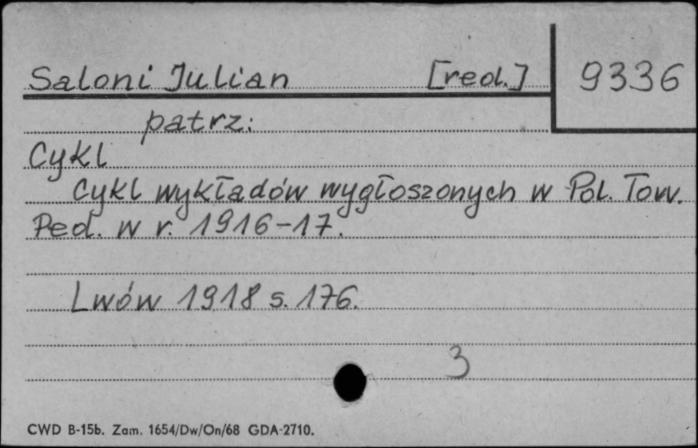 Saloni Julian [red.] 9336
patrz:
Cykl
Cykl wykładów wygłoszonych w Pol. Tow.
Ped. w r. 1916-17.
Lwów 1918 s. 176.
3
CWD B-15b. Zam. 1654/Dw/On/68 GDA-2710.